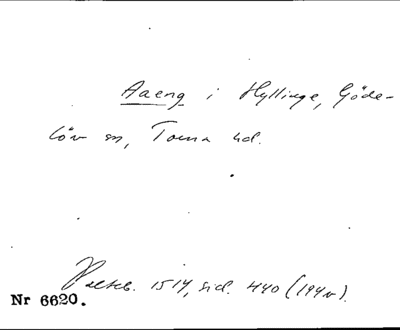 Aaeng i Hyllinge, Göde-
löv sn, Torna hd.
Palteb. 1514, sid. 440 (194v).
Nr 6620.